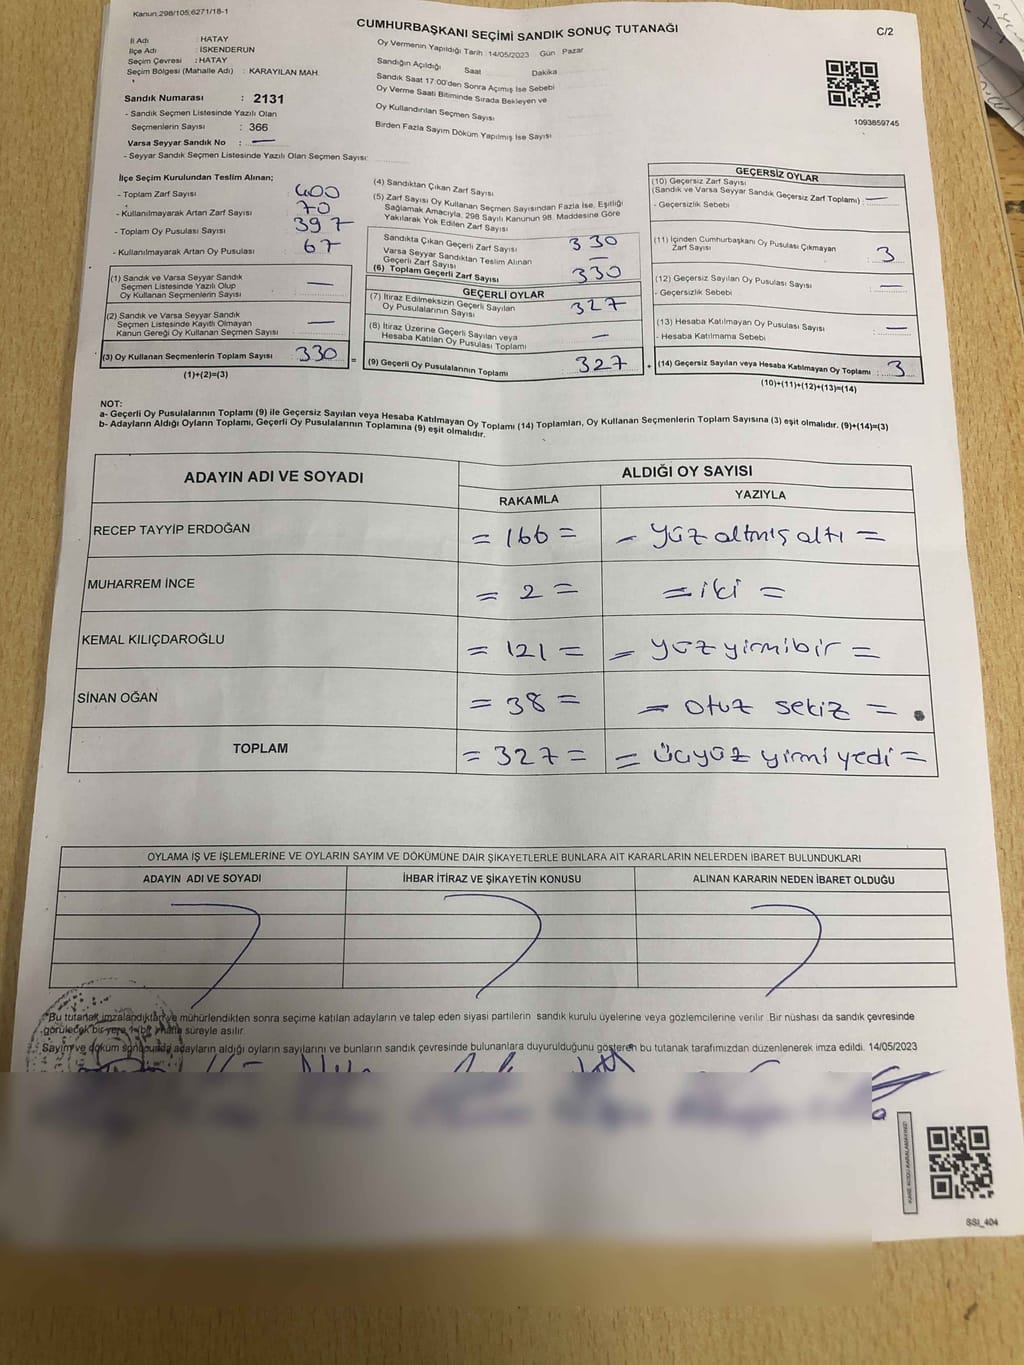 Kanun 298/105,6271/18-1
CUMHURBAŞKANI SEÇİMİ SANDIK SONUÇ TUTANAĞI
C/2
İl Adı : HATAY
İlçe Adı : İSKENDERUN
Seçim Çevresi : HATAY
Seçim Bölgesi (Mahalle Adı) : KARAYILAN MAH.
Sandık Numarası : 2131
- Sandık Seçmen Listesinde Yazılı Olan
Seçmenlerin Sayısı : 366
Varsa Seyyar Sandık No : —
- Seyyar Sandık Seçmen Listesinde Yazılı Olan Seçmen Sayısı:
Oy Vermenin Yapıldığı Tarih : 14/05/2023 Gün Pazar
Sandığın Açıldığı Saat Dakika
Sandık Saat 17:00'den Sonra Açımış İse Sebebi
Oy Verme Saati Bitiminde Sırada Bekleyen ve
Oy Kullandırılan Seçmen Sayısı
Birden Fazla Sayım Döküm Yapılmış İse Sayısı
1093859745
İlçe Seçim Kurulundan Teslim Alınan;
- Toplam Zarf Sayısı : 400
- Kullanılmayarak Artan Zarf Sayısı : 70
- Toplam Oy Pusulası Sayısı : 397
- Kullanılmayarak Artan Oy Pusulası : 67
(1) Sandık ve Varsa Seyyar Sandık
Seçmen Listesinde Yazılı Olup
Oy Kullanan Seçmenlerin Sayısı : —
(2) Sandık ve Varsa Seyyar Sandık
Seçmen Listesinde Kayıtlı Olmayan
Kanun Gereği Oy Kullanan Seçmen Sayısı : —
(3) Oy Kullanan Seçmenlerin Toplam Sayısı : 330 =
(1)+(2)=(3)
(4) Sandıktan Çıkan Zarf Sayısı
(5) Zarf Sayısı Oy Kullanan Seçmen Sayısından Fazla İse, Eşitliği
Sağlamak Amacıyla, 298 Sayılı Kanunun 98. Maddesine Göre
Yakılarak Yok Edilen Zarf Sayısı
Sandıkta Çıkan Geçerli Zarf Sayısı : 330
Varsa Seyyar Sandıktan Teslim Alınan
Geçerli Zarf Sayısı : —
(6) Toplam Geçerli Zarf Sayısı : 330
GEÇERLİ OYLAR
(7) İtiraz Edilmeksizin Geçerli Sayılan
Oy Pusulalarının Sayısı : 327
(8) İtiraz Üzerine Geçerli Sayılan veya
Hesaba Katılan Oy Pusulası Toplamı : —
(9) Geçerli Oy Pusulalarının Toplamı : 327 +
GEÇERSİZ OYLAR
(10) Geçersiz Zarf Sayısı
(Sandık ve Varsa Seyyar Sandık Geçersiz Zarf Toplamı) : —
- Geçersizlik Sebebi
(11) İçinden Cumhurbaşkanı Oy Pusulası Çıkmayan
Zarf Sayısı : 3
(12) Geçersiz Sayılan Oy Pusulası Sayısı : —
- Geçersizlik Sebebi
(13) Hesaba Katılmayan Oy Pusulası Sayısı : —
- Hesaba Katılmama Sebebi
(14) Geçersiz Sayılan veya Hesaba Katılmayan Oy Toplamı : 3
(10)+(11)+(12)+(13)=(14)
NOT:
a- Geçerli Oy Pusulalarının Toplamı (9) ile Geçersiz Sayılan veya Hesaba Katılmayan Oy Toplamı (14) Toplamları, Oy Kullanan Seçmenlerin Toplam Sayısına (3) eşit olmalıdır. (9)+(14)=(3)
b- Adayların Aldığı Oyların Toplamı, Geçerli Oy Pusulalarının Toplamına (9) eşit olmalıdır.
ADAYIN ADI VE SOYADI
ALDIĞI OY SAYISI
RAKAMLA YAZIYLA
RECEP TAYYİP ERDOĞAN = 166 = - yüz altmış altı =
MUHARREM İNCE = 2 = = iki =
KEMAL KILIÇDAROĞLU = 121 = = yüz yirmibir =
SİNAN OĞAN = 38 = = otuz sekiz =
TOPLAM = 327 = = üçyüz yirmi yedi =
OYLAMA İŞ VE İŞLEMLERİNE VE OYLARIN SAYIM VE DÖKÜMÜNE DAİR ŞİKAYETLERLE BUNLARA AİT KARARLARIN NELERDEN İBARET BULUNDUKLARI
ADAYIN ADI VE SOYADI İHBAR İTİRAZ VE ŞİKAYETİN KONUSU ALINAN KARARIN NEDEN İBARET OLDUĞU
*Bu tutanak imzalandıktan ve mühürlendikten sonra seçime katılan adayların ve talep eden siyasi partilerin sandık kurulu üyelerine veya gözlemcilerine verilir. Bir nüshası da sandık çevresinde
görülecek bir yere 1 bir hafta süreyle asılır.
Sayım ve döküm sonucunda adayların aldığı oyların sayılarını ve bunların sandık çevresinde bulunanlara duyurulduğunu gösteren bu tutanak tarafımızdan düzenlenerek imza edildi. 14/05/2023
KARE KODU KARALAMAYINIZ!
SSI_404